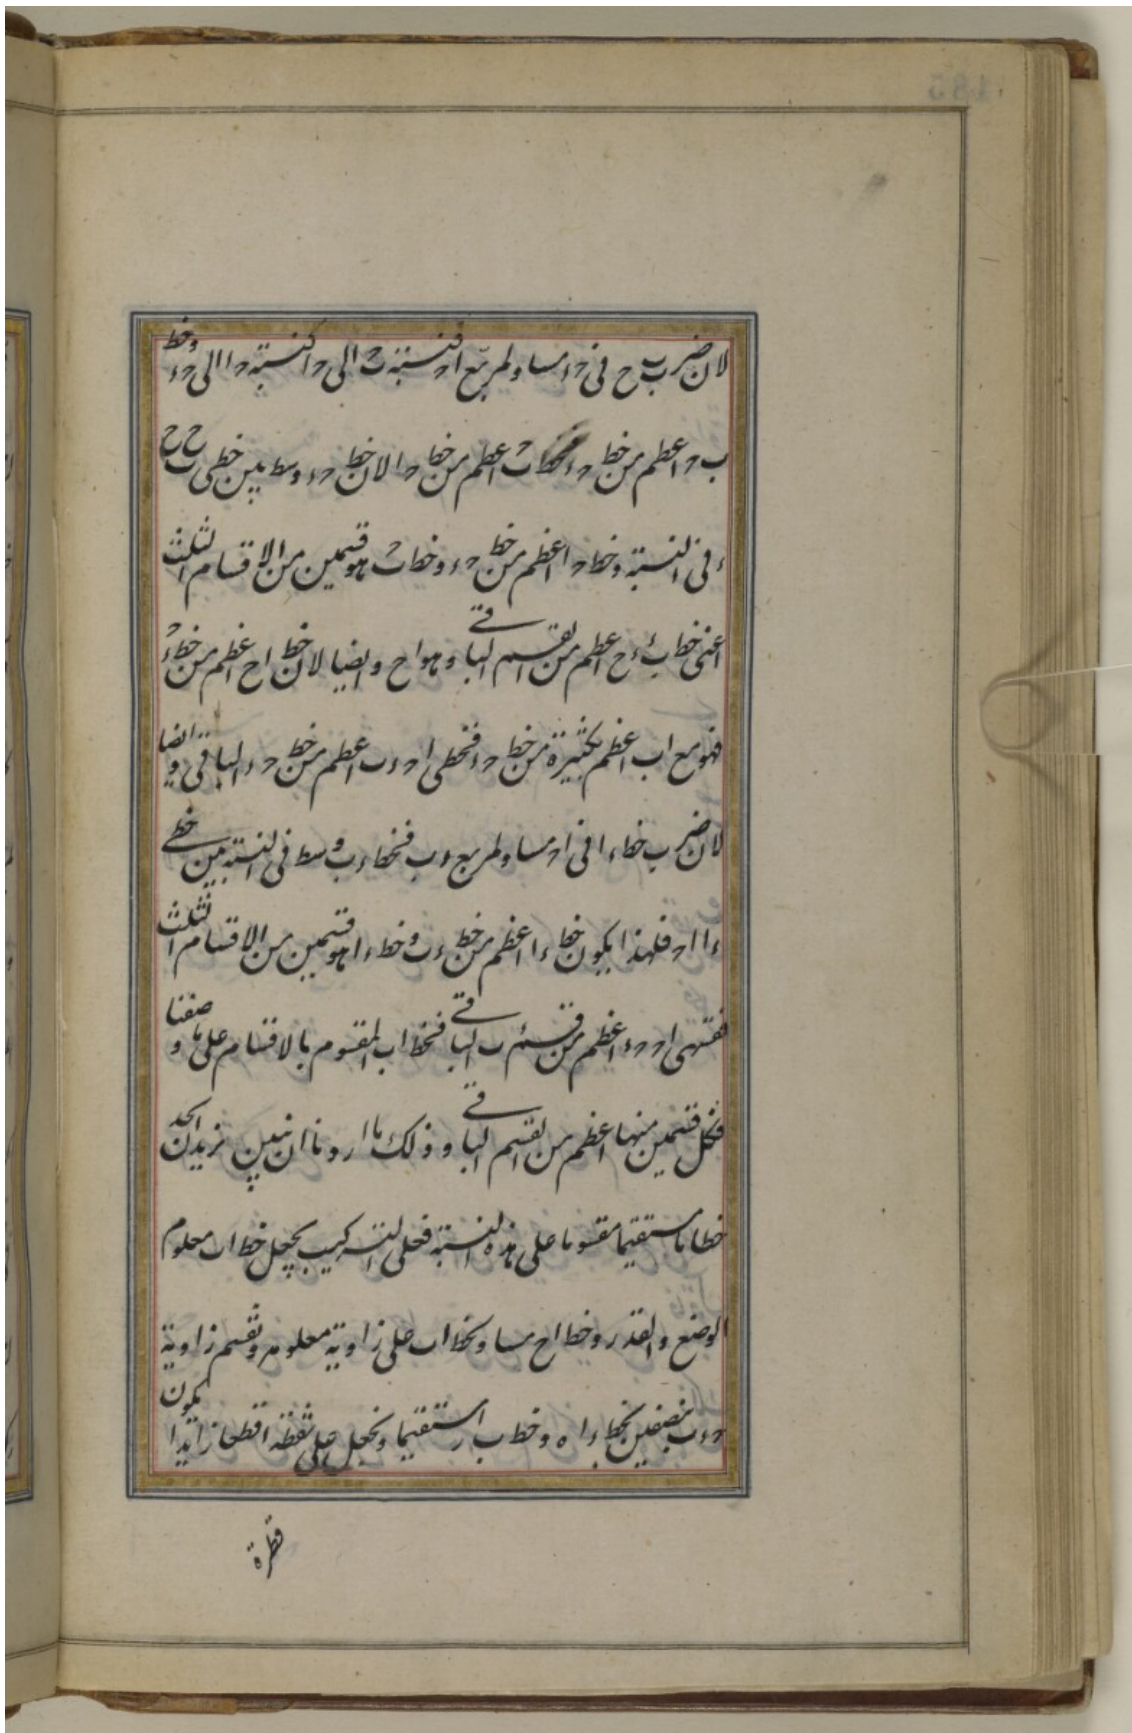 لان ضرب ب ح فى حء مساو لمربع اح فنسبة ب ح الى ح ا كنسبة ح ا الى حء وخط
ب ح اعظم من خط حء اعظم من خط ح ا لان خط حء وسط بين خطى ب ح ح
ء فى النسبة وخط ح ا اعظم من خط حء وخطا هو قسمين من الاقسام الثلثة
اعنى خط ب ء ح اعظم من القسم الباقى وهو اح وايضا لان خط اح اعظم من خط حء
فهو مع اب اعظم بكثيرة من خط حء فخطى اح ءب اعظم من خط حء الباقى وايضا
لان ضرب خط ءا فى اح مساو لمربع ءب فخط ءب وسط فى النسبة بين خطى
ءا اح فلهذا يكون خط ءا اعظم من خط ءب وخط ءا هو قسمين من الاقسام الثلثة
فقسمى اح حء اعظم من قسم ءب الباقى فخط اب المقسوم بالاقسام على ما وصفنا
فكل قسمين منها اعظم من القسم الباقى وذلك ما اردنا ان نبين نريد ان نجد
خطا مستقيما مقسوما على هذه النسبة فعلى التركيب نجعل خط اب معلوم
الوضع والقدر وخط اح مساو لخط اب على زاوية معلومة ونقسم زاوية
حءب بنصفين بخط ءاه وخط ب ار مستقيما ونجعل على نقطة ا قطعا زايدا يكون
قطره